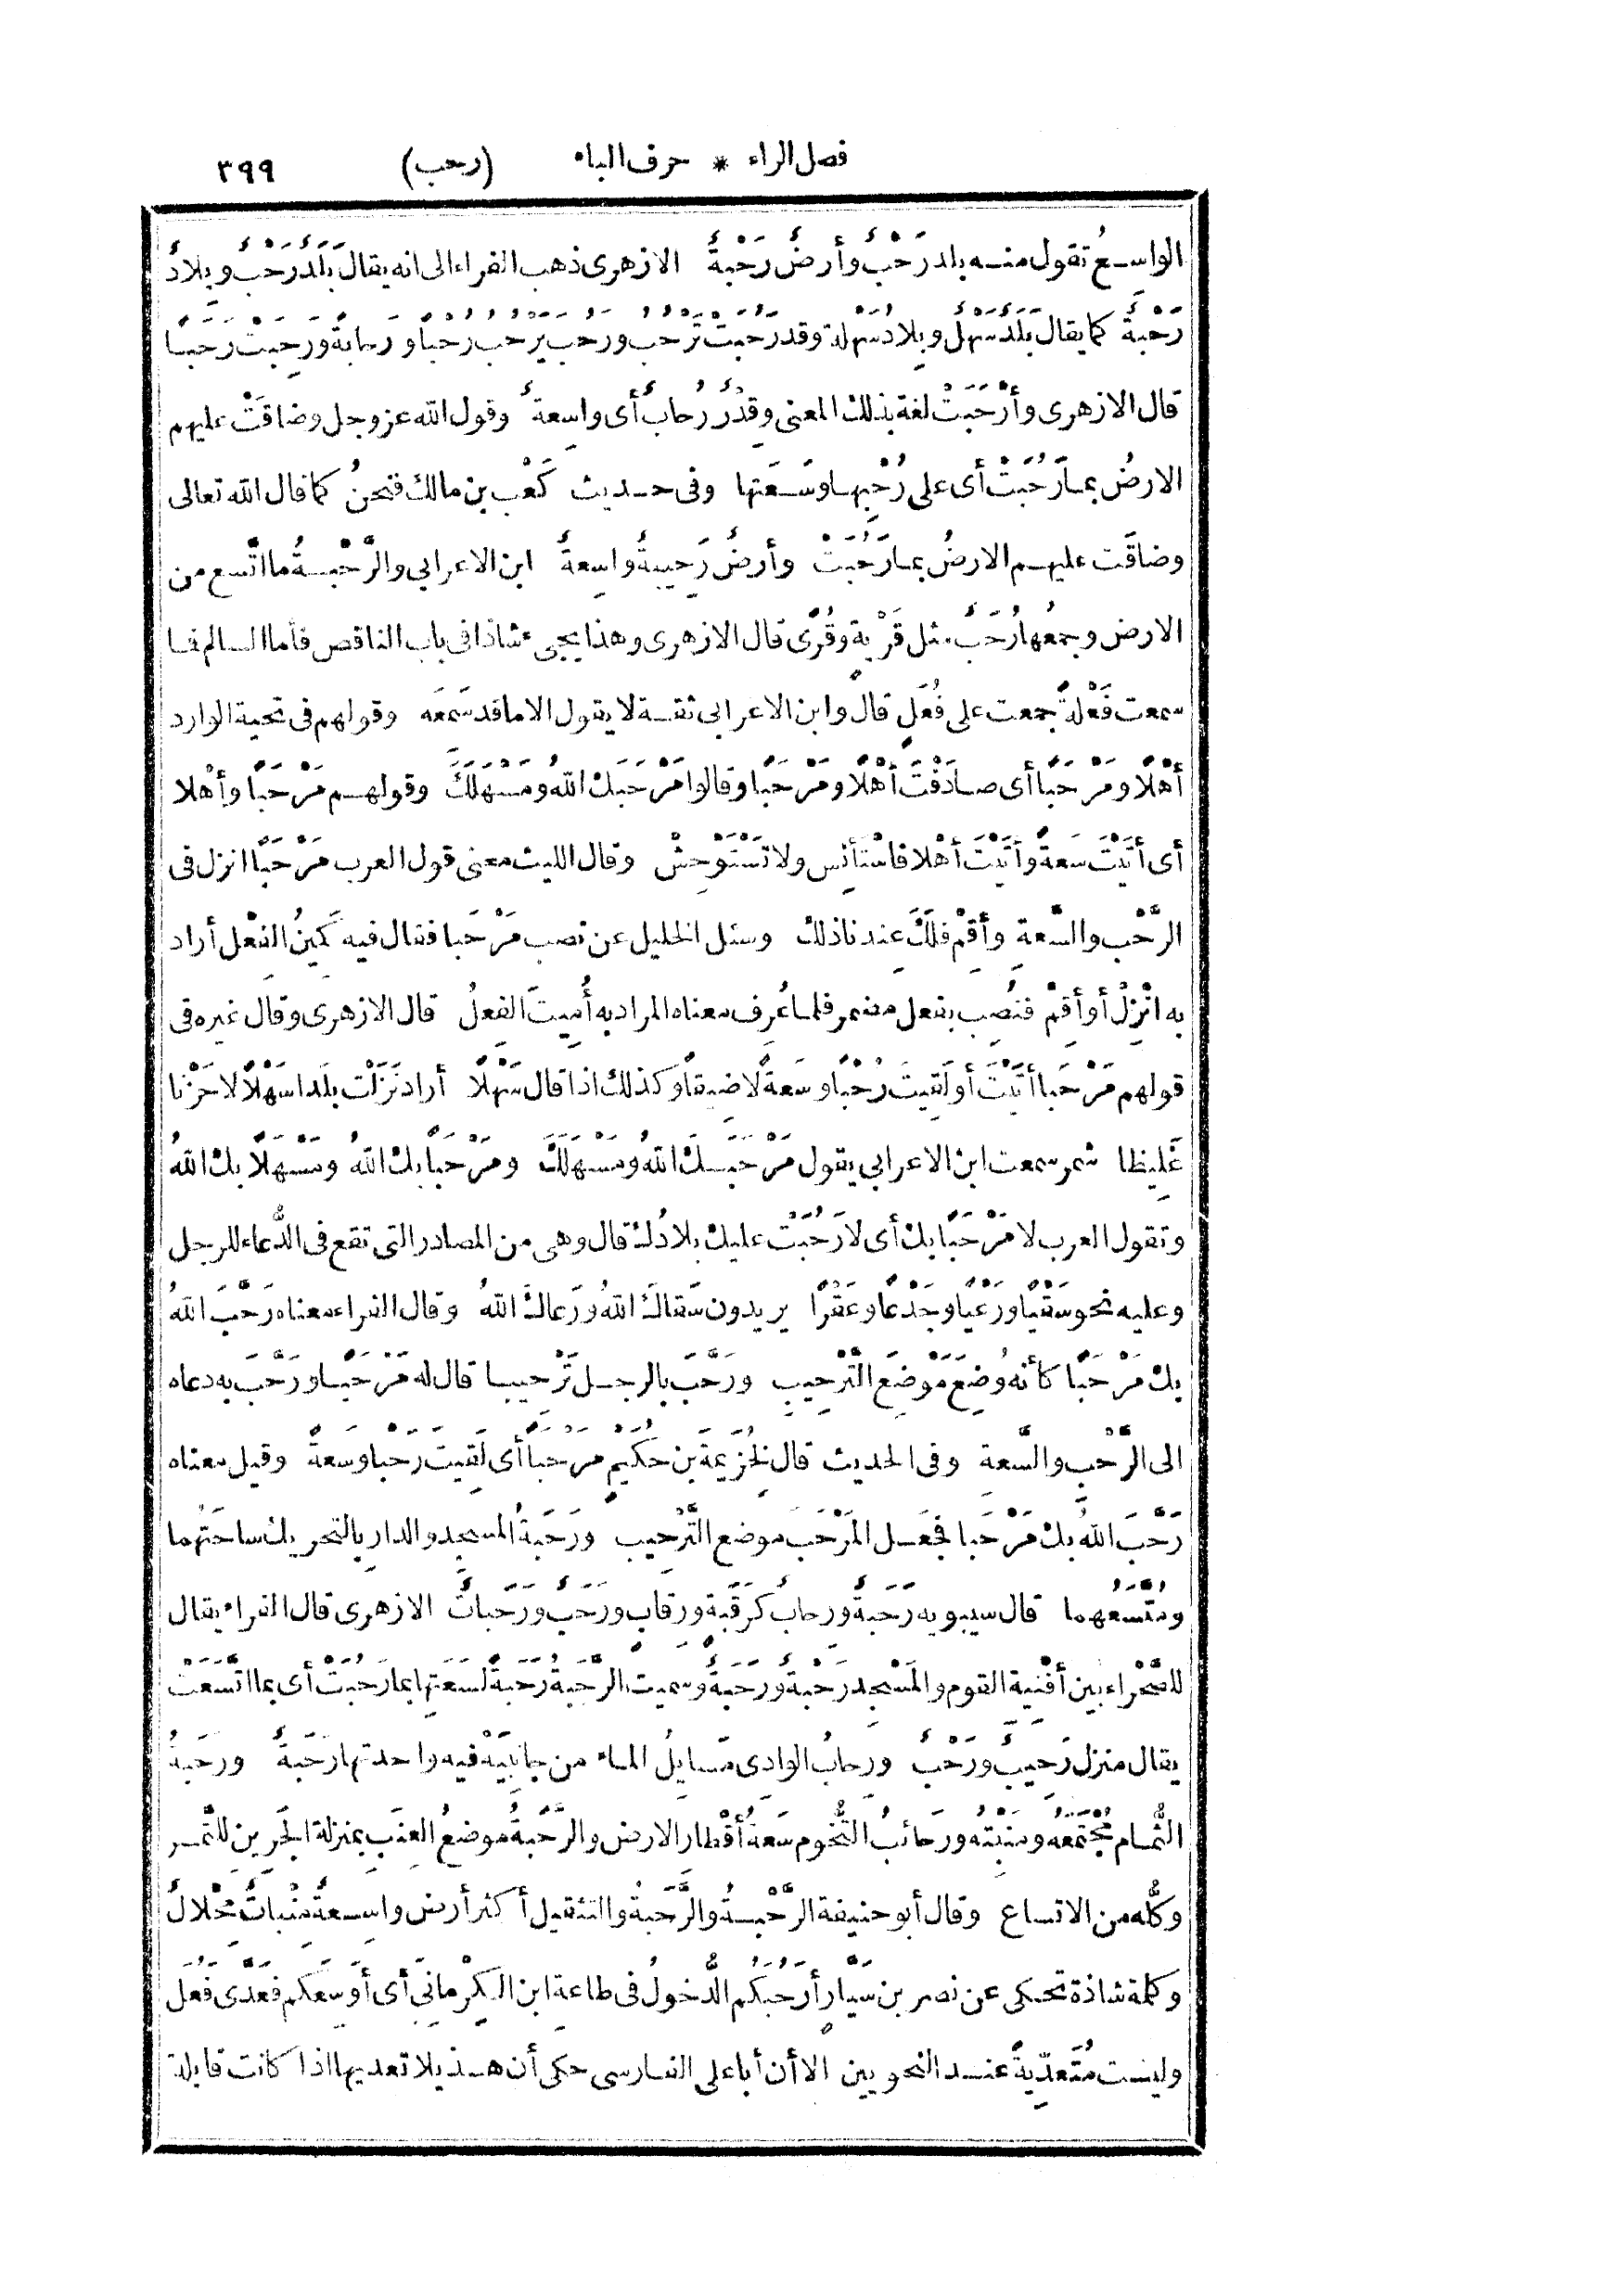 فصل الراء * حرف الباء (رحب) ٣٩٩
الواسعُ تقول منه بلد رَحْبٌ وأَرضٌ رَحْبةٌ الازهرى ذهب الفراء الى انه يقال بَلَدٌ رَحْبٌ وبِلادٌ
رَحْبةٌ كما يقال بَلَدٌ سَهْلٌ وبِلاد سَهْلة وقد رَحُبَتْ تَرْحُب ورَحُبَ يَرْحُب رُحْبًا ورَحابةً ورَحِبَتْ رَحَبًا
قال الازهرى وأَرْحَبَتْ لغة بذلك المعنى وقِدْرٌ رُحابٌ أى واسِعةٌ وقول الله عز وجل وضاقَتْ عليهم
الارضُ بما رَحُبَتْ أى على رُحْبِها وسَعَتها وفى حديث كَعْب بن مالك فنحنُ كما قال الله تعالى
وضاقَت عليهم الارضُ بما رَحُبَتْ وأَرضٌ رَحِيبةٌ واسِعةٌ ابن الاعرابى والرَّحْبةُ ما اتَّسع من
الارض وجمعُها رُحَبٌ مثل قَرْيةٍ وقُرًى قال الازهرى وهذا يجىء شاذا فى باب الناقص فأما السالم فما
سمعت فَعْلةً جمعت على فُعَلٍ قال وابن الاعرابى ثقة لا يقول الا ما قد سَمِعَه وقولهم فى تحية الوارد
أَهْلًا ومَرْحَبًا أى صادَفْتَ أَهْلًا ومَرْحَبًا وقالوا مَرْحَبَكَ اللهُ ومَسْهَلَكَ وقولهم مَرْحَبًا وأَهْلا
أى أَتَيْتَ سَعةً وأَتَيْتَ أَهْلا فاسْتَأْنِس ولا تَسْتَوْحِشْ وقال الليث معنى قول العرب مَرْحَبًا انزل فى
الرَّحْب والسَّعةِ وأَقِمْ فلَكَ عِندنا ذلك وسئل الخليل عن نصب مَرْحَبا فقال فيه كَمِينُ الفِعْل أراد
به انْزِلْ أو أَقِمْ فنُصِب بفعل مضمر فلما عُرِف معناه المراد به أُمِيتَ الفِعلُ قال الازهرى وقال غيره فى
قولهم مَرْحَبا أَتَيْتَ أو لَقِيتَ رُحْبًا وسَعةً لا ضِيقًا وكذلك اذا قال سَهْلًا أراد نَزَلْت بلَدا سَهْلًا لا حَزْنا
غَلِيظا شمر سمعت ابن الاعرابى يقول مَرْحَبَكَ اللهُ ومَسْهَلَكَ ومَرْحَبًا بك اللهُ ومَسْهَلًا بك اللهُ
وتقول العرب لا مَرْحَبًا بك أى لا رَحُبَتْ عليك بلادُك قال وهى من المصادر التى تقع فى الدُّعاء للرجل
وعليه نحو سَقْيًا ورَعْيًا وجَدْعًا وعَقْرًا يريدون سَقاكَ اللهُ ورَعاك اللهُ وقال الفراء معناه رَحَّبَ اللهُ
بك مَرْحَبًا كأنه وُضِعَ مَوْضِعَ التَّرْحِيبِ ورَحَّبَ بالرجل تَرْحِيبا قال له مَرْحَبًا ورَحَّبَ به دعاه
الى الرَّحْب والسَّعةِ وفى الحديث قال لخُزَيْمةَ بن حُكَيْمٍ مَرْحَبًا أى لَقِيتَ رَحْبًا وسَعةً وقيل معناه
رَحَّبَ اللهُ بك مَرْحَبا فجعَل المَرْحَبَ موضع التَّرْحِيب ورَحَبةُ المسجد والدار بالتحريك ساحَتُهما
ومُتَّسَعُهما قال سيبويه رَحَبةٌ ورِحابٌ كرَقَبةٍ ورِقابٍ ورَحَبٌ ورَحَباتٌ الازهرى قال الفراء يقال
للصَّحْراء بين أَفْنِيةِ القوم والمَسْجِد رَحْبةٌ ورَحَبةٌ وسميت الرَّحَبةُ رَحَبةً لسَعَتِها بما رَحُبَتْ أى بما اتَّسَعَتْ
يقال منزل رَحِيبٌ ورَحْبٌ ورِحابُ الوادى مَسايِلُ الماء من جانِبَيْه فيه واحدتها رَحَبةٌ ورَحَبةُ
الثُّمام مُجْتَمَعُه ومَنْبِتُه ورَحائبُ التُّخوم سَعةُ أَقْطار الارض والرَّحَبةُ موضعُ العِنَبِ بمنزلة الجَرِين للتَّمر
وكلُّه من الاتساع وقال أبو حنيفة الرَّحْبةُ والرَّحَبةُ والتثقيل أكثر أرض واسِعةٌ مِنْباتٌ مِحْلالٌ
وكلمة شاذة تحكى عن نصر بن سَيَّارٍ أَرَحُبَكُم الدُّخولُ فى طاعةِ ابن الكِرْمانِى أى أَوَسِعَكم فعَدَّى فَعُلَ
وليست مُتَعدِّيةً عند النحويين الا أن أبا على الفارسى حكى أن هذيلا تعديها اذا كانت قابلة